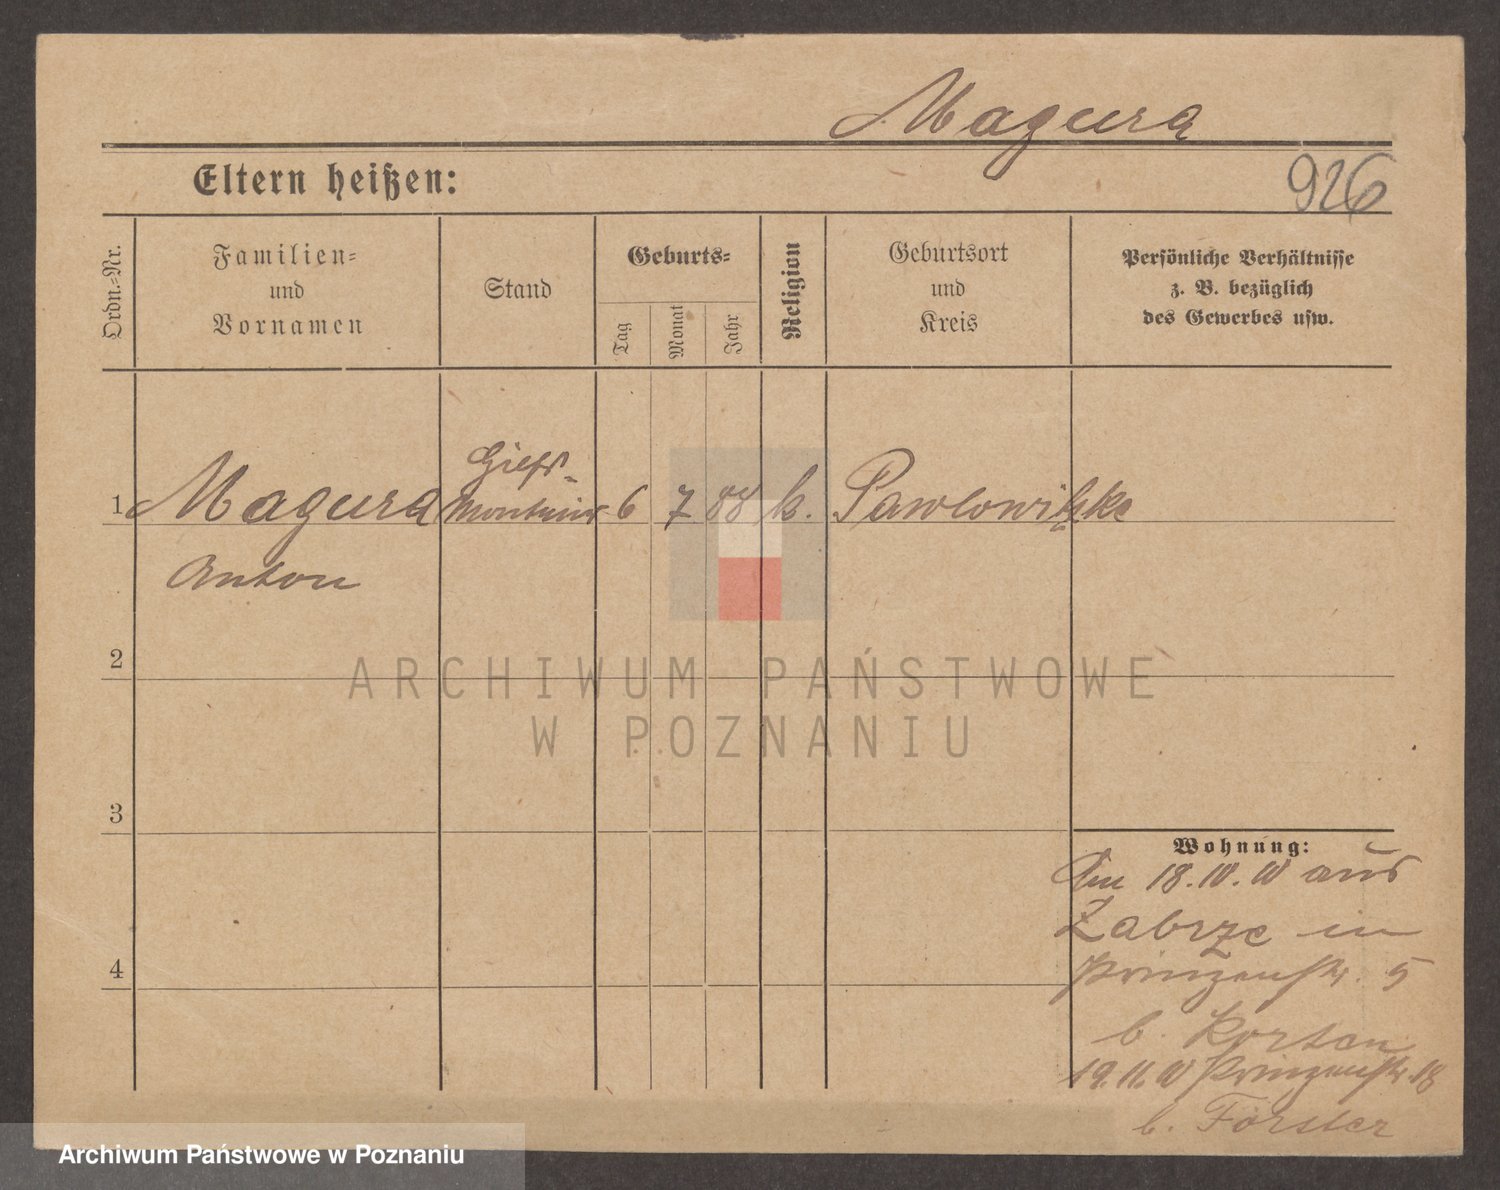 Magura
Eltern heißen:
926
Ordn.-Nr.
Familien-
und
Vornamen
Stand
Geburts-
Tag
Monat
Jahr
Religion
Geburtsort
und
Kreis
Persönliche Verhältnisse
z. B. bezüglich
des Gewerbes usw.
1 Magura 6 7 88 k. Pawlowitzke
Anton
2
ARCHIWUM PAŃSTWOWE
W POZNANIU
3
Wohnung:
18. IV. aus
Zabrze in
4
Prinzenstr. 5
b. Korten
19.11. Prinzenstr. 18
b. Förster
Archiwum Państwowe w Poznaniu